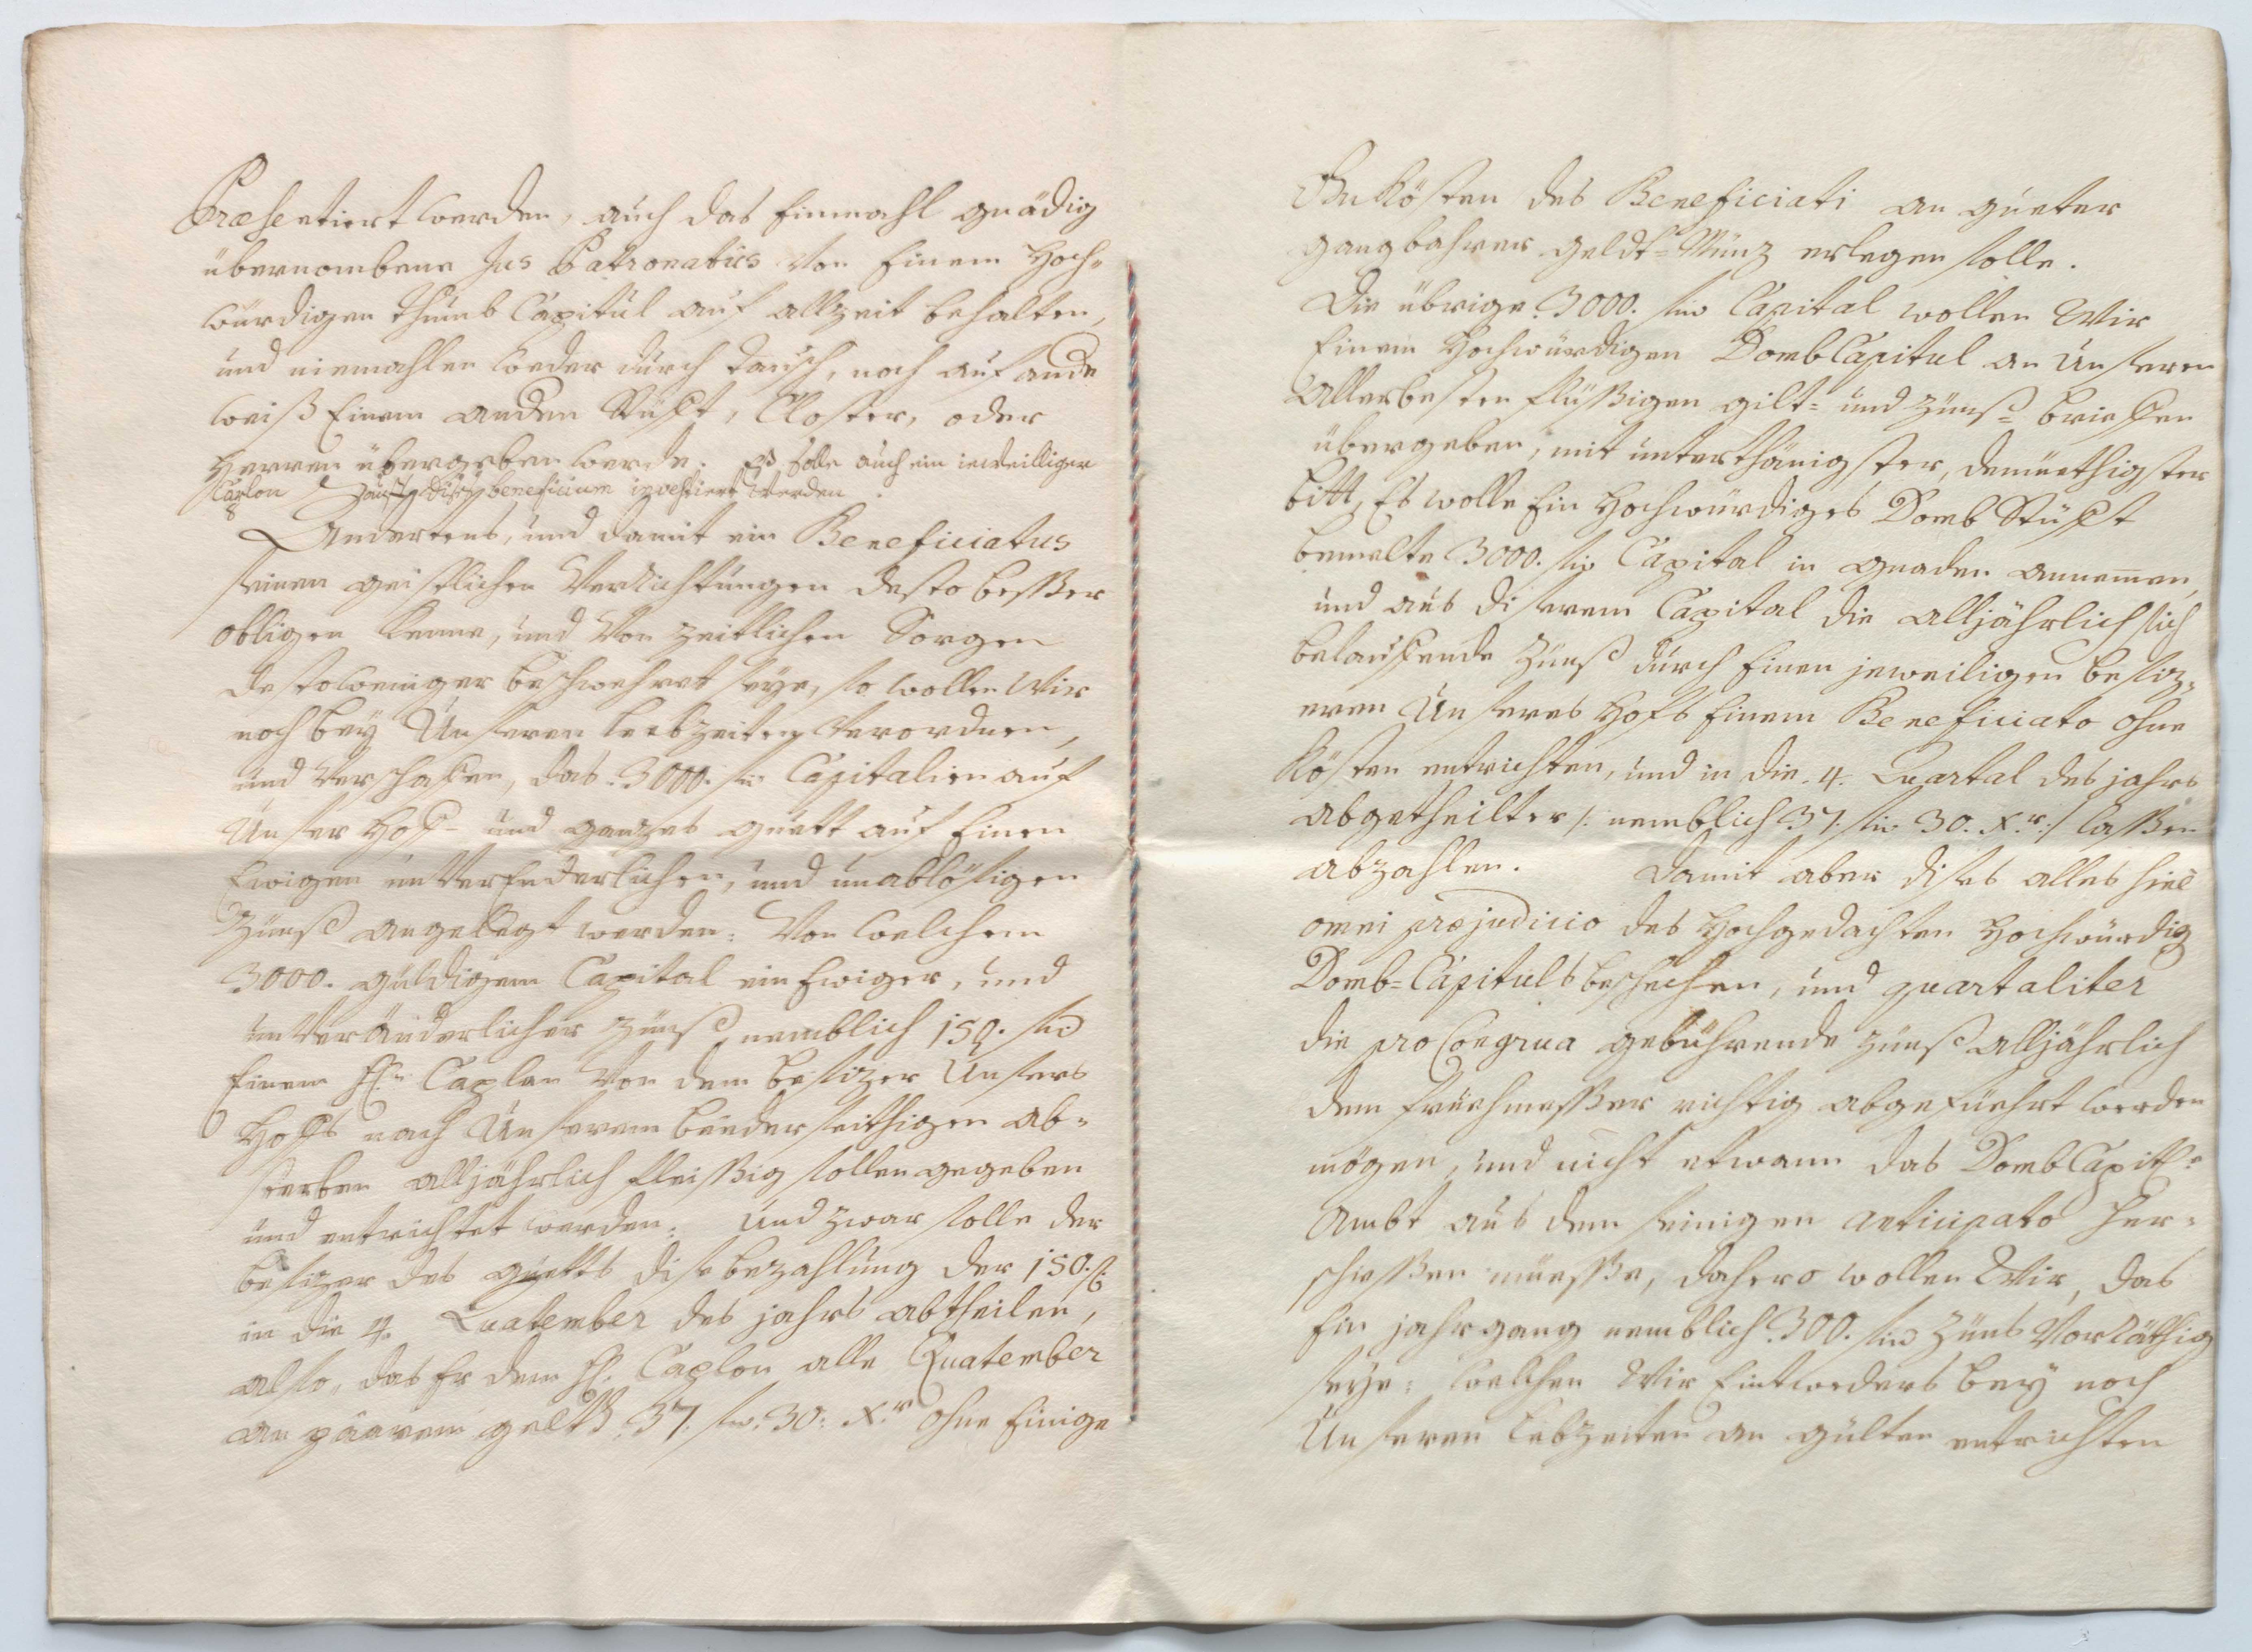 Præsentiert werden, auch das Einmahl gnädig
übernombene Jus Patronatûs von Einem Hoch-
würdigen Thumb Capitul auf allzeit behalten,
und niemahlen weder durch Tausch, noch auf ande
weiß Einem anderen Stüfft, Closter, oder
Herren übergeben werde. Es solle auch ein iedweilliger
Caplon auf diß beneficium investiert werden.
Andertens, und damit ein Beneficiatus
seinen geistlichen Verrichtungen desto besser
obligen kenne, und von zeitlichen Sorgen
desto weniger beschwehret seye, so wollen Wir
noch bey Unseren lebzeiten verordnen,
und verschaffen, das 3000. fl. Capitalien auf
Unser Hoff- und ganzes guett auf Einen
Ewigen unverenderlichen, und unablösigen
Zünß angelegt werden: Von welchem
3000. guldigem Capital ein Ewiger, und
unveränderlicher Zünß, nemblich 150. fl.
Einem H: Caplan von dem besizer Unsers
Hoffs nach Unserem beederseithigen ab-
sterben alljährlich fleissig sollen gegeben
und entrichtet werden. Und zwar solle der
besizer des guetts dise bezahlung der 150. fl.
in die 4. Quatember des jahrs abtheilen,
also, das Er dem H. Caplon alle Quatember
an paarem gelt 37. fl. 30. Xr. ohne Einige
Unkösten des Beneficiati an gueter
gangbahrer geldt-Münz erlegen solle.
Die übrige 3000. fl. Capital wollen Wir
Einem Hochwürdigen DombCapitul an Unseren
Allerbesten flüssigen gilt- und zünß-brieffen
übergeben, mit unterthänigster, demüethigster
bitt, Es wolle Ein Hochwürdiges Domb Stüfft
bemelte 3000. fl. Capital in gnaden annemen,
und aus diserem Capital die alljährlich sich
belauffende Zünß durch Einen jeweiligen besiz-
eren Unseres Hofs Einem Beneficiato ohne
Kösten entrichten, und in die 4. Quartal des jahrs
abgetheilter /: nemblich 37. fl. 30. Xr. :/ lassen
abzahlen. Damit aber dises alles sine
omni præjudicio des Hochgedachten Hochwürdig
Domb-Capituls beschehen, und quartaliter
die pro Congrua gebührende Zünß alljährlich
dem Früehmesser richtig abgeführt werden
mögen, und nicht etwann das DombCapitl-
Ambt aus dem seinigen anticipato her-
schiessen müesse, dahero wollen Wir, das
Ein jahrgang nemblich 300. fl. Züns Vorräthig
seye: welchen Wir Entweders bey noch
Unseren Lebzeiten an gülten entrichten